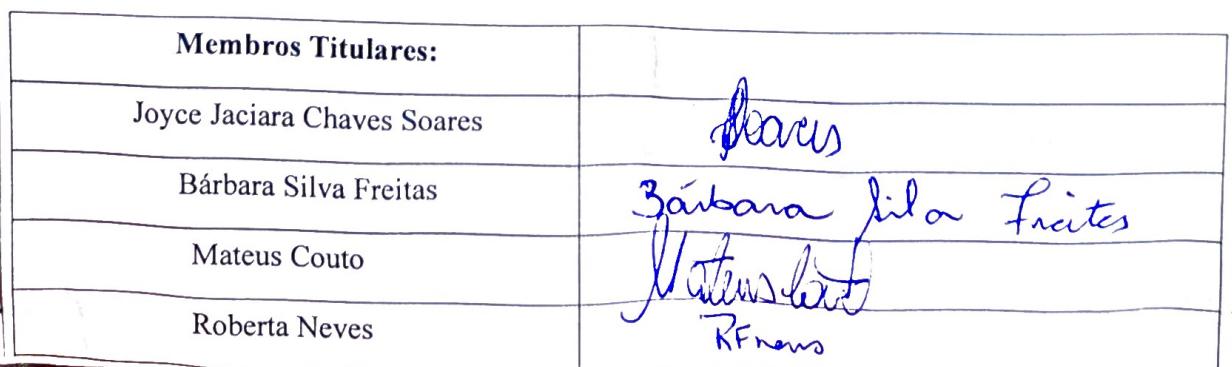 Membros Titulares:
Joyce Jaciara Chaves Soares
Bárbara Silva Freitas Bárbara Silva Freitas
Mateus Couto Mateus Couto
Roberta Neves